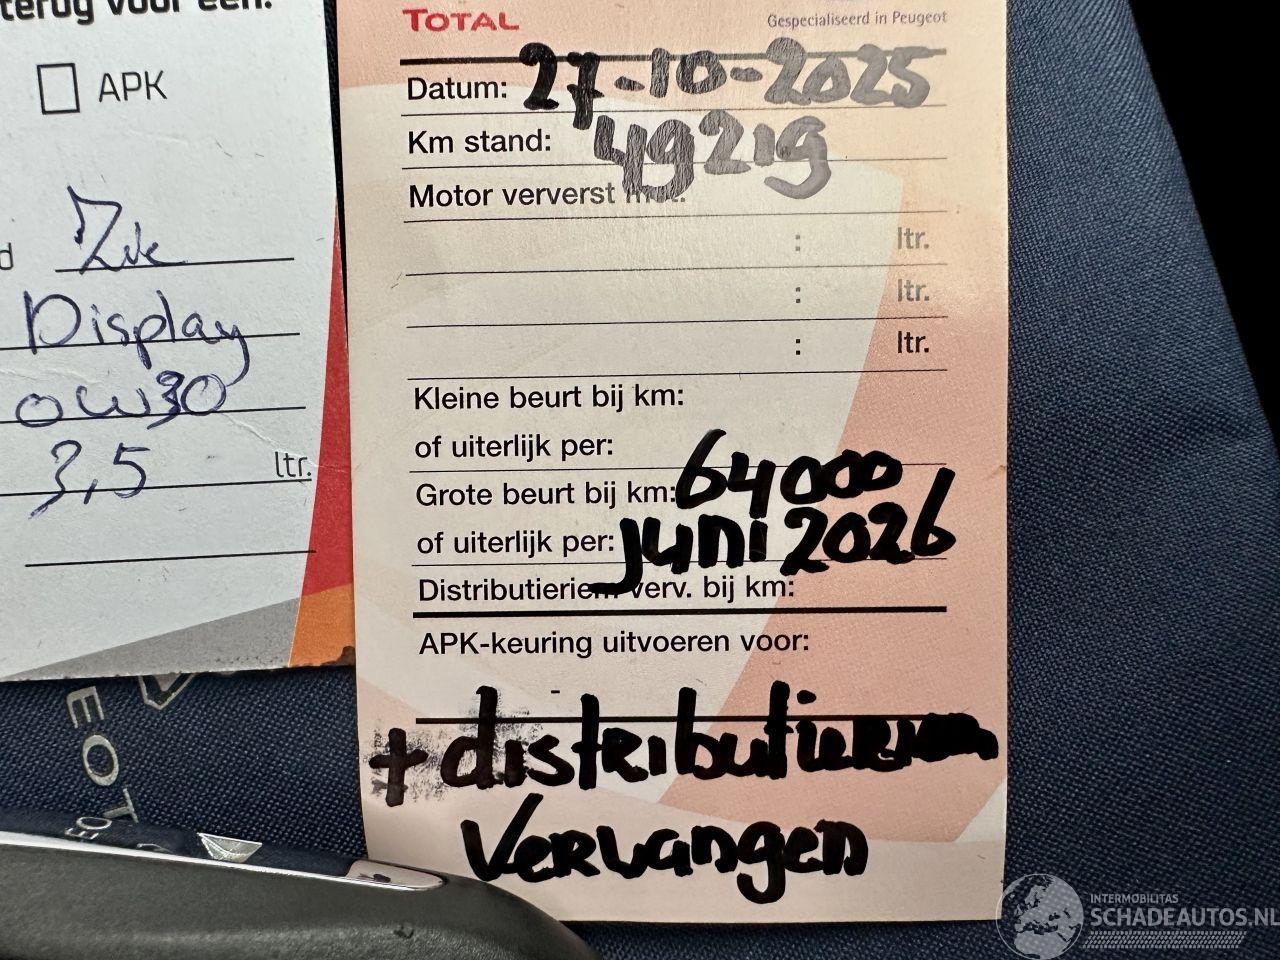 terug voor een:
APK
d Zie
Display
0W30
3,5 ltr.
TOTAL
Gespecialiseerd in Peugeot
Datum: 27-10-2025
Km stand: 49219
Motor ververst met:
: ltr.
: ltr.
: ltr.
Kleine beurt bij km:
of uiterlijk per:
Grote beurt bij km: 64000
of uiterlijk per: juni 2026
Distributieriem verv. bij km:
APK-keuring uitvoeren voor:
-
+ distributieriem
vervangen
EOT
INTERMOBILITAS
SCHADEAUTOS.NL